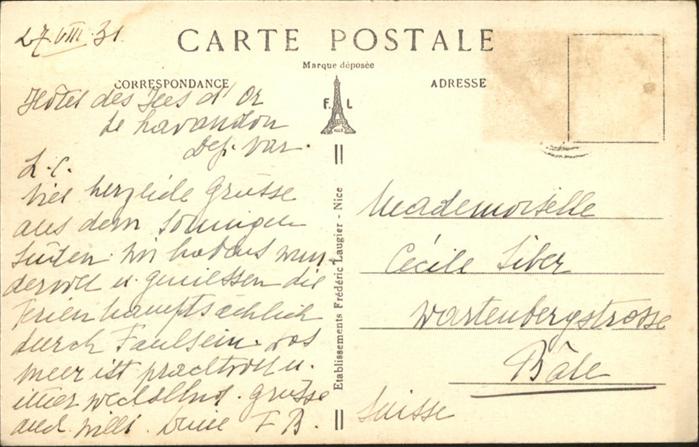 27. VIII. 31.
CARTE POSTALE
Marque déposée
CORRESPONDANCE
ADRESSE
F. L.
Hôtel des Iles d'Or
Le Lavandou
Dep. Var.
L. C.
Viel herzliche Grüsse
aus dem sonnigen
Süden. Wir habens wun
dervoll u. geniessen die
Ferien hauptsächlich
durch Faulsein. Das
Meer ist prachtvoll u.
immer wechselnd. Grüsse
auch Willi. Deine F B.
Etablissements Frédéric Laugier - Nice
Mademoiselle
Cécile
Wartenbergstrasse
Bâle
Suisse